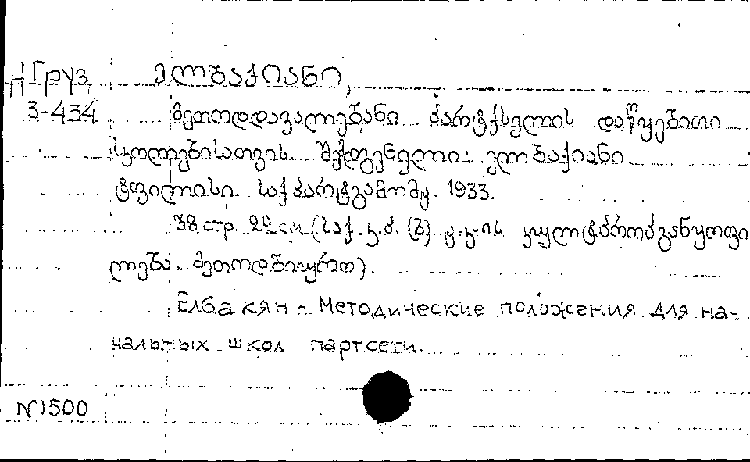 Груз. ელბაქიანი,
3-434 მეთოდდავალებანი პარტქსელის დაწყებითი
სკოლებისათვის. შემდგენელი: ელბაქიანი
ტფილისი. სახპარტგამომც. 1933.
38 стр. 22 см (საქ. კ.პ. (ბ) ც.კ-ის კულტპროპგანყოფი
ლება. მეთოდბიურო).
Елбакян - Методические положения для на-
чальных школ партсети.
N1500